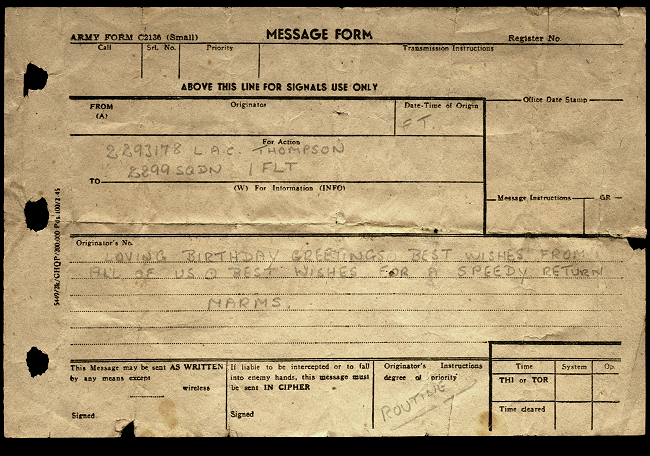 ARMY FORM C2136 (Small)
MESSAGE FORM
Register No.
Call
Srl. No.
Priority
Transmission Instructions
ABOVE THIS LINE FOR SIGNALS USE ONLY
FROM
(A)
Originator
Date-Time of Origin
Office Date Stamp
For Action
2293178 L A C. THOMPSON
2899 SQDN 1 FLT
TO
(W) For Information (INFO)
Message Instructions
GR
Originator's No.
LOVING BIRTHDAY GREETINGS. BEST WISHES FROM
ALL OF US BEST WISHES FOR A SPEEDY RETURN
MARMS.
This Message may be sent AS WRITTEN
by any means except
wireless
Signed
If liable to be intercepted or to fall
into enemy hands, this message must
be sent IN CIPHER
Signed
Originator's Instructions
degree of priority
ROUTINE
Time
System
Op.
THI or TOR
Time cleared